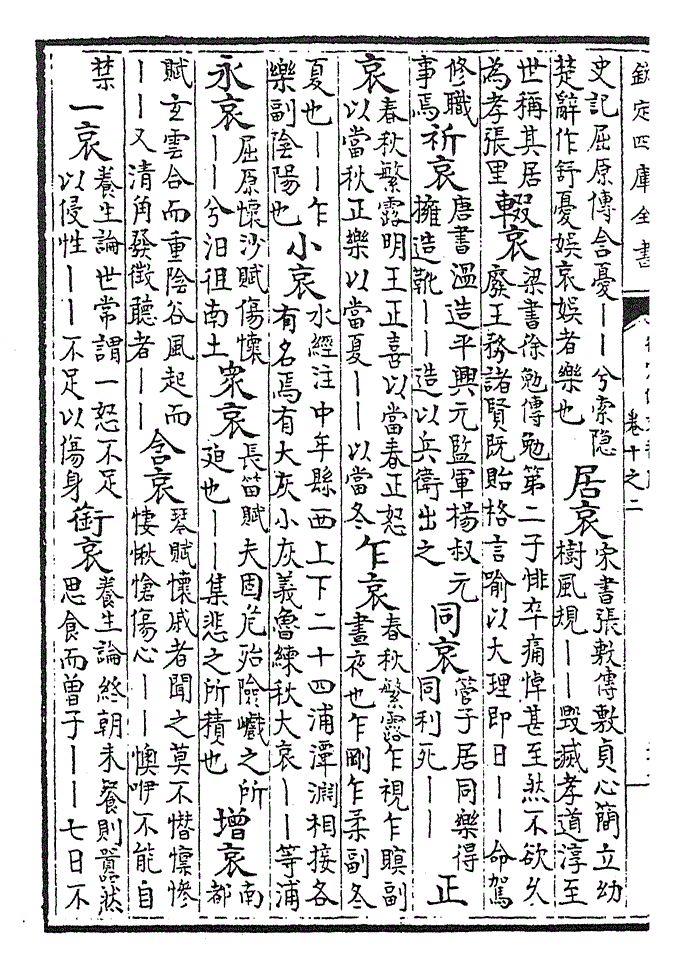 欽定四庫全書
卷十之二
史記屈原傳含憂丨丨兮索隠
楚辭作舒憂娯哀娯者樂也
居哀
宋書張敷傳敷貞心簡立幼
樹風規丨丨毀滅孝道淳至
世稱其居
為孝張里
輟哀
梁書徐勉傳勉第二子悱卒痛悼甚至然不欲久
廢王務諸賢既貽格言喻以大理即日丨丨命駕
修職
事焉
祈哀
唐書溫造平興元監軍楊叔元
擁造靴丨丨造以兵衛出之
同哀
管子居同樂得
同利死丨丨
正
哀
春秋繁露明王正喜以當春正怒
以當秋正樂以當夏丨丨以當冬
乍哀
春秋繁露乍視乍瞑副
晝夜也乍剛乍柔副冬
夏也丨丨乍
樂副陰陽也
小哀
水經注中年縣西上下二十四浦潭淵相接各
有名焉有大灰小灰義魯練秋大哀丨丨等浦
永哀
屈原懷沙賦傷懷
丨丨兮汨徂南土
衆哀
長笛賦夫固危殆險巇之所
廹也丨丨集悲之所積也
增哀
南
都
賦玄雲合而重陰谷風起而
丨丨又清角發徵聽者丨丨
含哀
琴賦懷戚者聞之莫不憯懍慘
悽愀愴傷心丨丨懊咿不能自
禁
一哀
養生論世常謂一怒不足
以侵性丨丨不足以傷身
銜哀
養生論終朝未餐則囂然
思食而曾子丨丨七日不